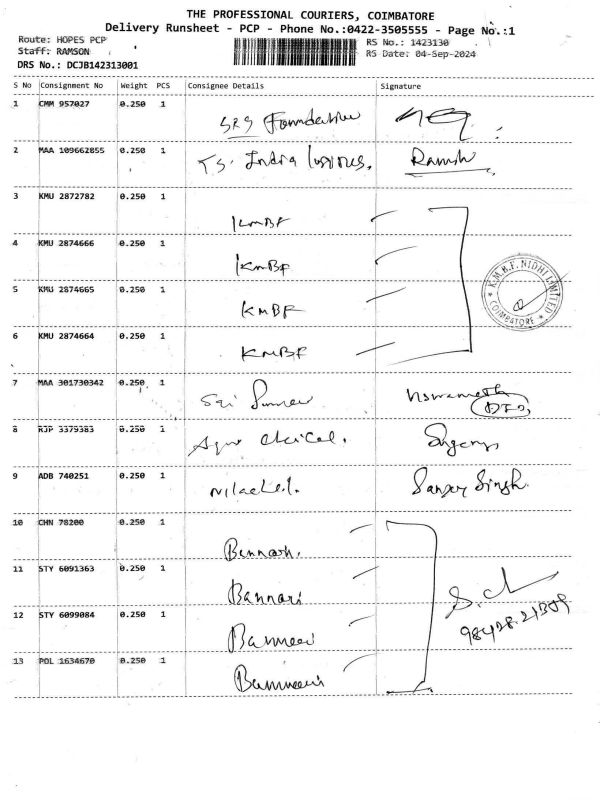 THE PROFESSIONAL COURIERS, COIMBATORE
Delivery Runsheet - PCP - Phone No.:0422-3505555 - Page No.:1
Route: HOPES PCP
RS No.: 1423130
Staff: RAMSON
RS Date: 04-Sep-2024
DRS No.: DCJB142313001
S No Consignment No Weight PCS Consignee Details Signature
1 CMM 957027 0.250 1
SRS Foundation
2 MAA 109662855 0.250 1
T.S. India
Ramsh
3 KMU 2872782 0.250 1
KMBF
4 KMU 2874666 0.250 1
KMBF
5 KMU 2874665 0.250 1
KMBF
6 KMU 2874664 0.250 1
KMBF
K.M.B.F. NIDHI LIMITED
* COIMBATORE *
7 MAA 301730342 0.250 1
Sri
8 RJP 3379383 0.250 1
9 ADB 740251 0.250 1
Sanjay Singh
10 CHN 78200 0.250 1
Bannari
11 STY 6091363 0.250 1
Bannari
12 STY 6099084 0.250 1
Bannari
13 POL 1634670 0.250 1
Bannari